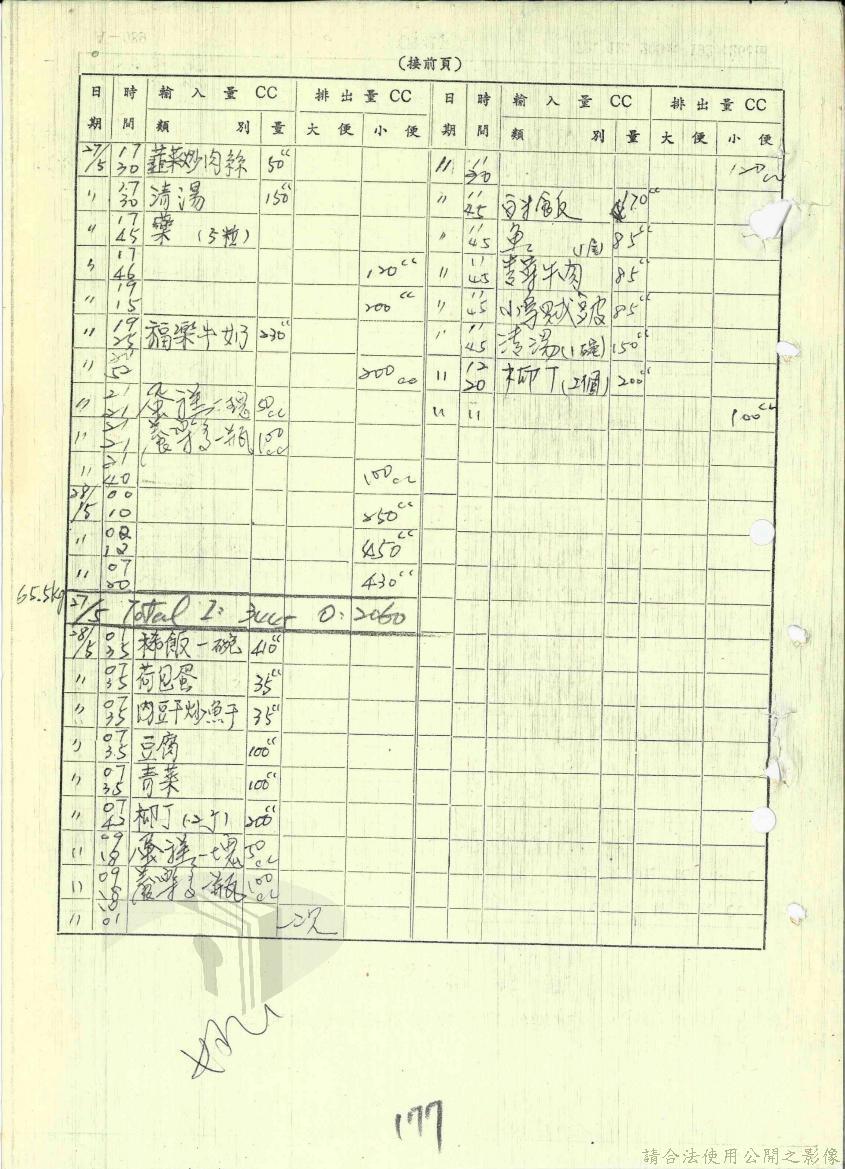 (接前頁)
日期 時間 輸入量CC 排出量CC 日期 時間 輸入量CC 排出量CC
類別 量 大便 小便 類別 量 大便 小便
27/5 17 30 韮菜炒肉絲 50cc
〃 17 30 清湯 150cc
〃 17 45 藥 (5粒)
〃 17 46 120cc
〃 19 15 200cc
〃 19 25 福樂牛奶 230cc
〃 52 200cc
〃 21 21 一塊 50cc
〃 21 21 養樂多一瓶 100cc
〃 21 40 100cc
28/5 00 10 250cc
〃 02 12 450cc
〃 07 20 430cc
65.5kg
27/5 Total I: O: 2060
28/5 07 35 稀飯一碗 410cc
〃 07 35 荷包蛋 35cc
〃 07 35 肉豆干炒魚干 35cc
〃 07 35 豆腐 100cc
〃 07 35 青菜 100cc
〃 07 42 柳丁(2個) 200cc
〃 09 18 一塊 50cc
〃 09 18 養樂多一瓶 100cc
〃 01 一次
〃 11 30 120cc
〃 11 45 白米飯 170cc
〃 11 45 魚 (1尾) 85cc
〃 11 45 牛肉 85cc
〃 11 45 85cc
〃 11 45 清湯(1碗) 150cc
〃 12 20 柳丁(2個) 200cc
〃 〃 100cc
177
請合法使用公開之影像